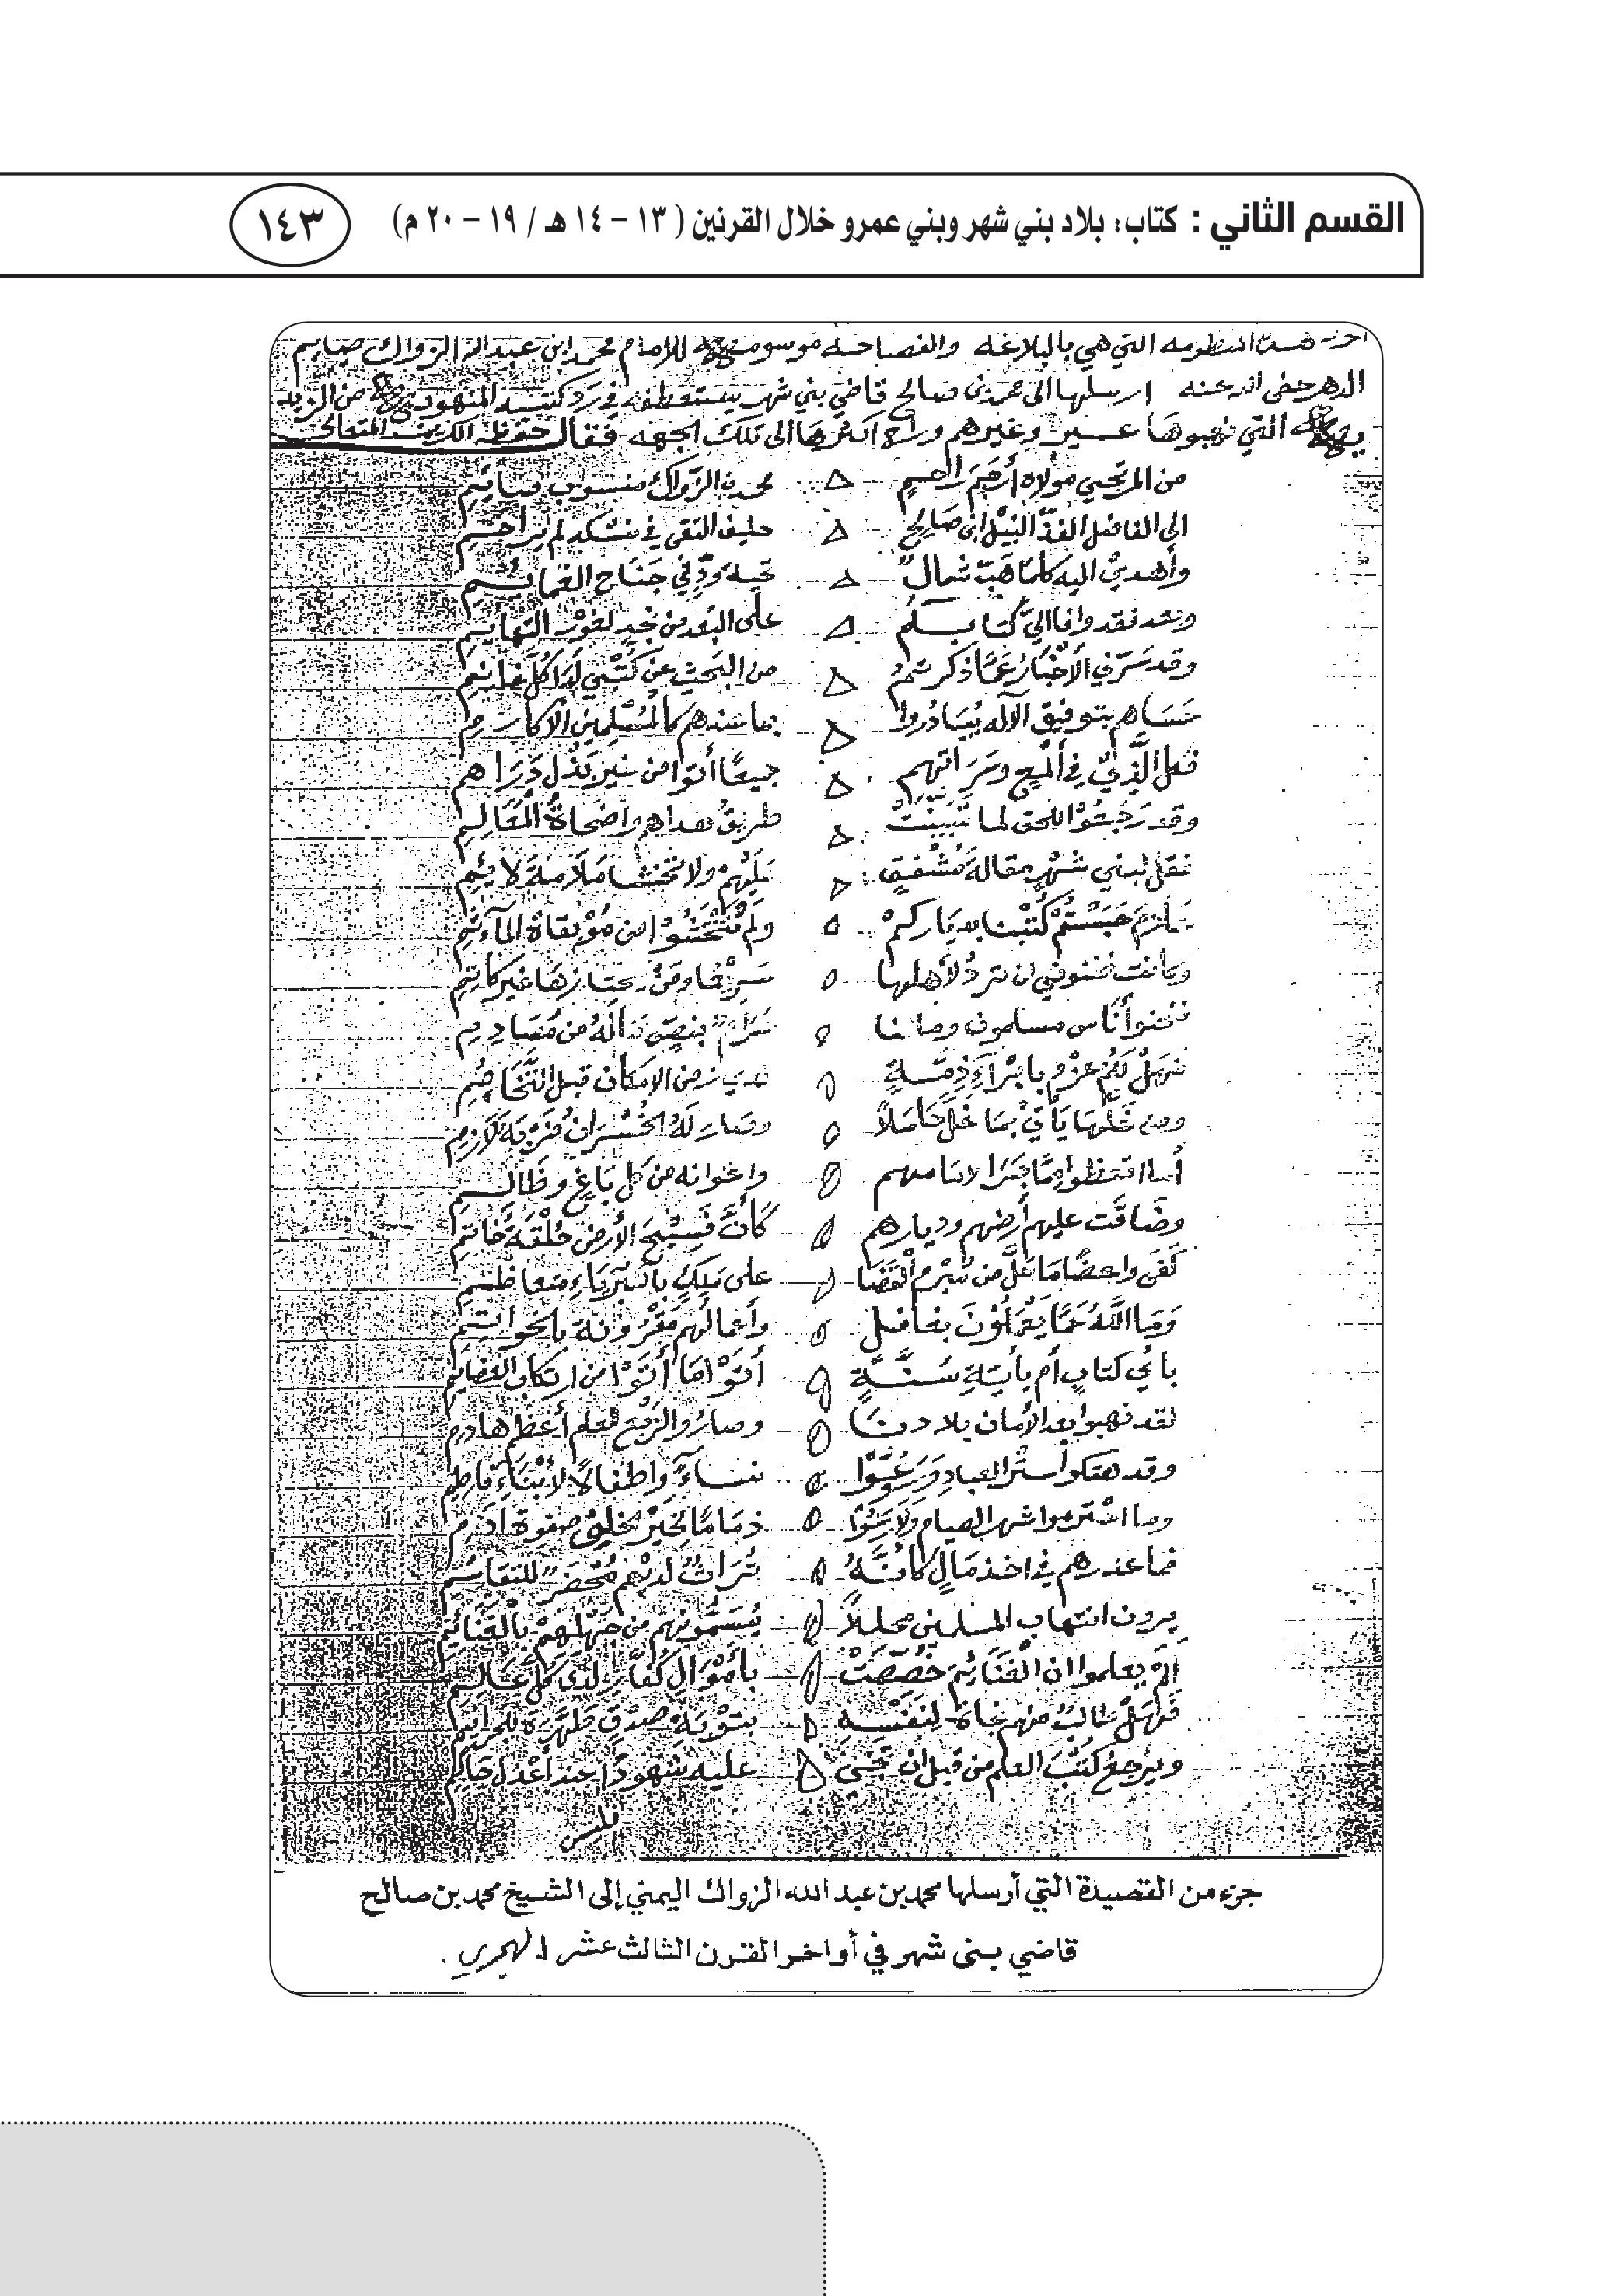 القسم الثاني : كتاب: بلاد بني شهر وبني عمرو خلال القرنين ( ١٣ – ١٤ هـ / ١٩ – ٢٠ م)
١٤٣
المنظومه التي هي بالبلاغه والفصاحه موسومه للامام محمد ابن عبد الله الزواك صايم
الدهر ارسلها الى محمد بن صالح قاضي بني شهر يستعطفه في رد كتبه المنهوبه من الزيديه
التي نهبوها عسير وغيرهم وراح اكثرها الى تلك الجهه فقال حفظه الكريم المتعالي
من المرتجي مولاه أرحم راحم محمد الزواك منسوب صائم
الى الفاضل الفذ النبيل ابن صالح حليف التقى في لم يزاحم
وأهدي اليه كلما هب شمال تحية ود في جناح الغمائم
وبعد فقد وافا الي كتابكم على البعد من نجد لغور التهايم
وقد سرني الاخبار عما ذكرتم من البحث عن كتبي لدا كل غانم
عساهم بتوفيق الاله يبادروا بما عندهم كالمسلمين الاكارم
فعل الذي في ألمع وسراتهم جميعا أتوا من غير بذل دراهم
وقد رجعوا للحق لما تبينت طريق هداهم واضحاة المعالم
فقل لبني شهر مقالة مشفق عليهم ولا تخشا ملامة لايم
علام حبستم كتبنا بدياركم ولم تختشوا من موبقاة المآثم
وما نحن أناس مسلمون ومالنا حرام بنص ناله من مصادم
فهل لكم عزم بابرآء ذمة لدي زمن الامكان قبل التخاصم
ومن غلها يأتي بما غل حاملا وصار له الخسران ضربة لازم
أما اتعظوا مما جرا لامامهم واعوانه من كل باغ وظالم
وضاقت عليهم أرضهم وديارهم كأن فسيح الأرض حلقة خاتم
كفى واعضا ما حل من مبرم القضا على ملك بالكبرياء متعاظم
وما الله عما يعملون بغافل وأعمالهم مقرونة بالخواتم
بأي كتاب أم بأية سنة أتوا ما أتوا من ارتكاب العضايم
لقد نهبوا بعد الأمان بلادنا وصاروا لربع العلم أعظم هادم
وقد هتكوا ستر العباد وروعوا نساء وأطفالا لأبناء فاطم
وما احترموا شهر الصيام ولا رعوا ذماما لخير الخلق صفوة آدم
فما عذرهم في اخذ مال كأنه تراث لديهم محضر للتقاسم
يرون انتهاب المسلمين محللا يسمونهم من جهلهم بالغنائم
الم يعلموا ان الغنائم خصصت بأموال كفار لدى كل عالم
فهل طالب منهم نجاة لنفسه بتوبة صدق طهرة للجرائم
ويرجع كتب العلم من قبل ان تجي عليه شهودا عند أعدل حاكم
جزء من القصيدة التي أرسلها محمد بن عبد الله الزواك اليمني إلى الشيخ محمد بن صالح
قاضي بني شهر في أواخر القرن الثالث عشر الهجري .